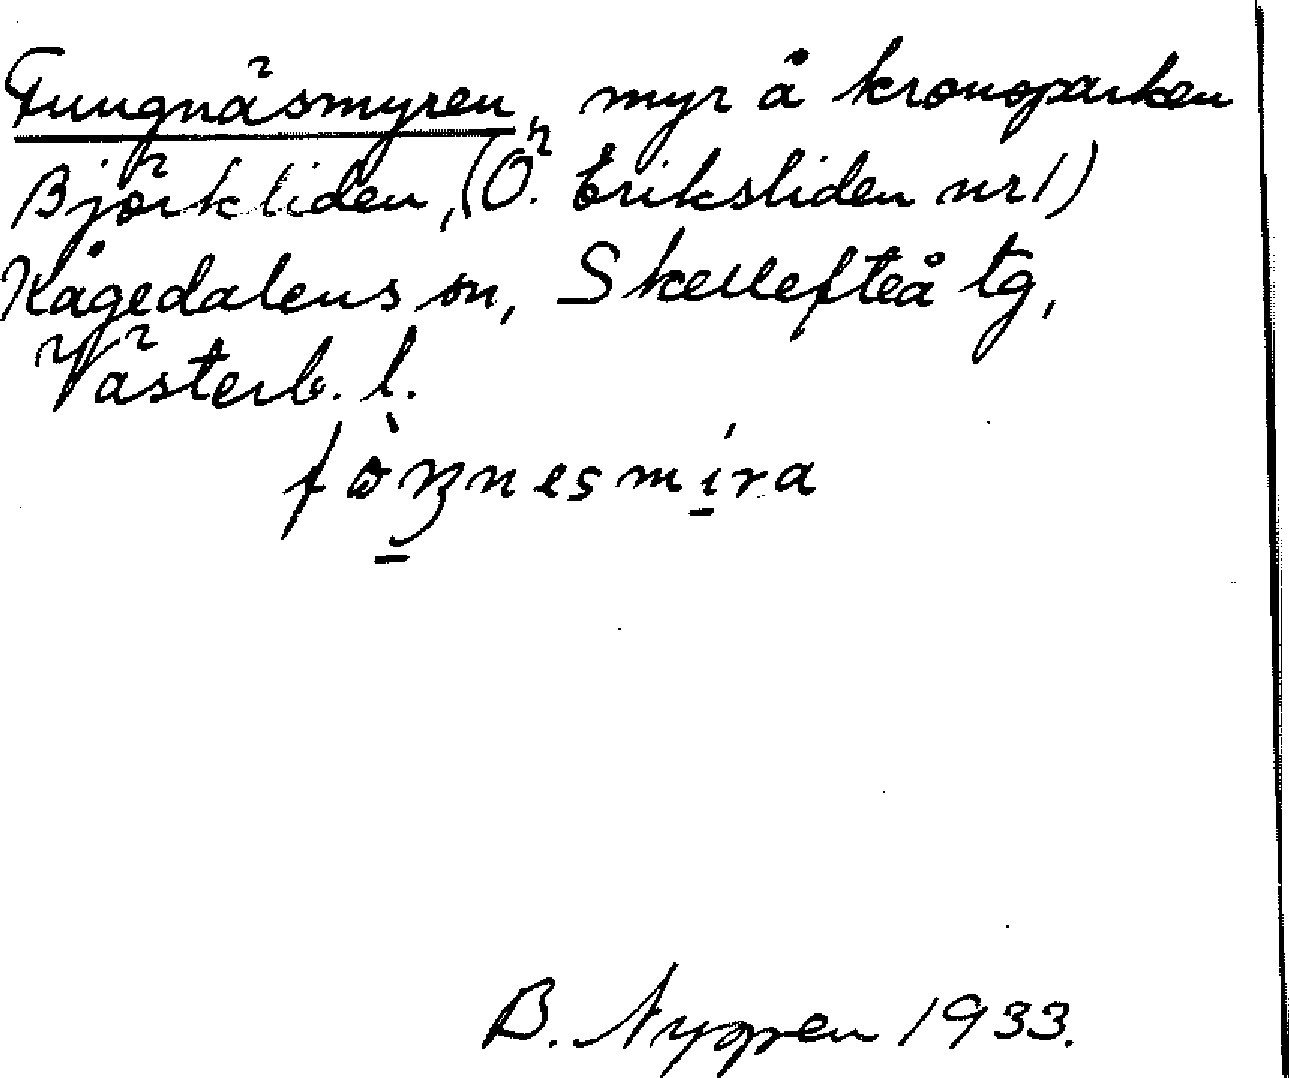 Fungnäsmyren, myr å kronoparken
Björkliden, (Ö. Eriksliden nr 1)
Kågedalens sn, Skellefteå tg,
Västerb. l.
fòŋnesmíra
B. Nygren 1933.